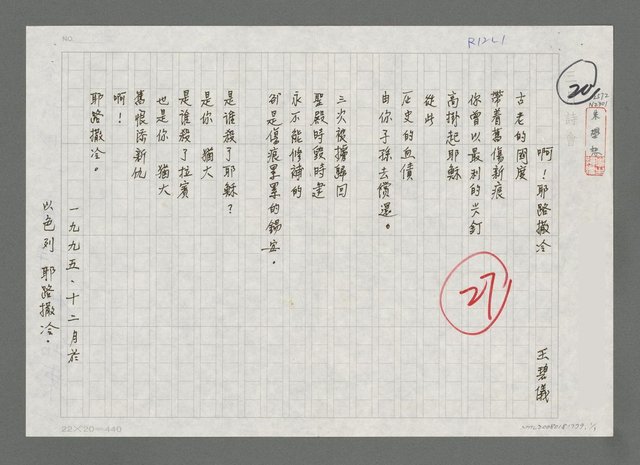 NO.
R12L1
20
啊！耶路撒冷
王碧儀
古老的國度
帶着舊傷新痕
你曾以最利的尖釘
高掛起耶穌
從此
歷史的血債
由你子孫去償還。
三次被擄歸回
聖殿時毀時建
永不能修補的
到是傷痕累累的錫安。
是誰殺了耶穌？
是你 猶大
是誰殺了拉賓
也是你 猶大
舊恨添新仇
啊！
耶路撒冷。
一九九五、十二月於
以色列 耶路撒冷。
27
22×20=440